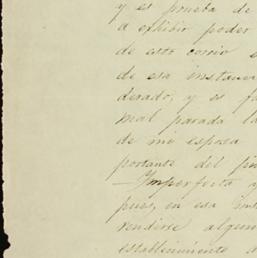 y es prueba de
a exhibir poder
de esto como
de esa instan
derado, y es fa
mal parada la
de mi esposa
portante del pin
—Imperfecta y
pues, en esa in
rendirse algun
establecimiento d